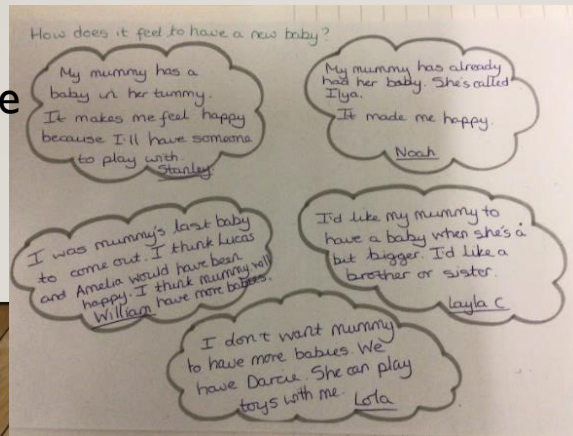 How does it feel to have a new baby?
My mummy has a
baby in her tummy.
It makes me feel happy
because I'll have someone
to play with.
Stanley
My mummy has already
had her baby. She's called
Ilya.
It made me happy.
Noah
I was mummy's last baby
to come out. I think Lucas
and Amelia would have been
happy. I think mummy will
William have more babies.
I'd like my mummy to
have a baby when she's a
bit bigger. I'd like a
brother or sister.
Layla C
I don't want mummy
to have more babies. We
have Darcie. She can play
toys with me. Lola
e